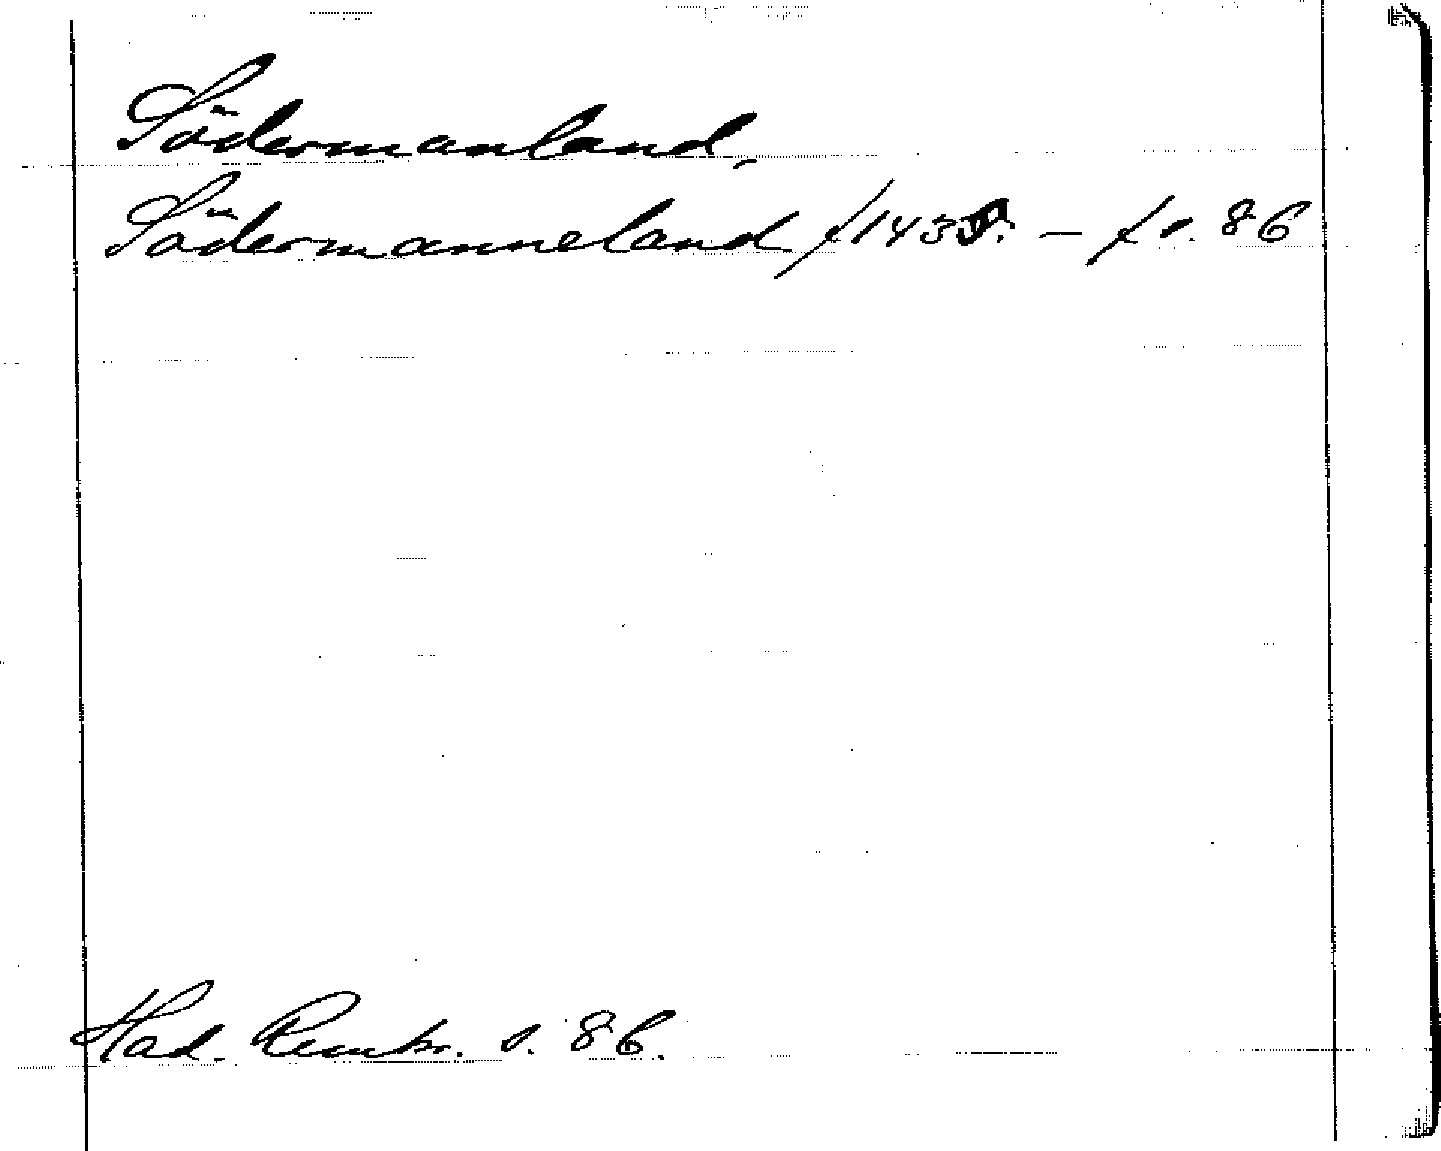 Södermanland,
Södermanneland /1435. — s. 86
Had. Reuter. s. 86.